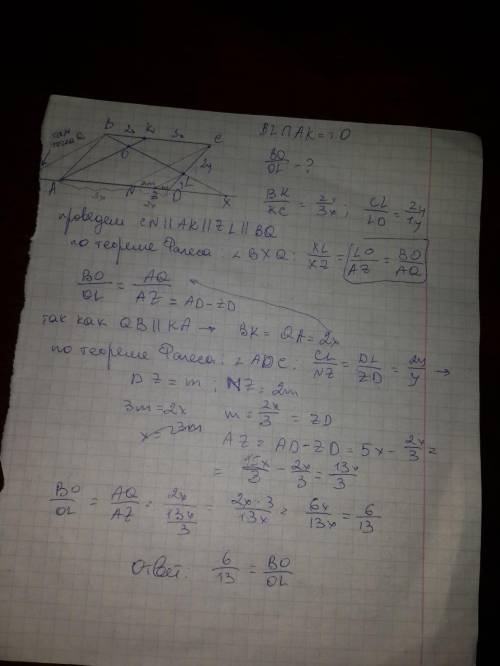 BL∩AK = O
B 2x K 3x C
O
BO/OL - ?
2y
там точка Q
L
A 3x N 2m m D X
2x
BK/KC = 2x/3x ; CL/LD = 2y/1y
проведем CN || AK || ZL || BQ
по теореме Фалеса: ∠BXQ: XL/XZ = LO/AZ = BO/AQ
BO/OL = AQ/AZ = AD-ZD
так как QB || KA → BK = QA = 2x
по теореме Фалеса: ∠ADC: CL/NZ = DL/ZD = 2y/y →
DZ = m ; NZ = 2m
3m = 2x m = 2x/3 = ZD
x = 3m
AZ = AD - ZD = 5x - 2x/3 =
= 15x/3 - 2x/3 = 13x/3
BO/OL = AQ/AZ = 2x/(13x/3) = 2x·3/13x = 6x/13x = 6/13
Ответ: 6/13 = BO/OL